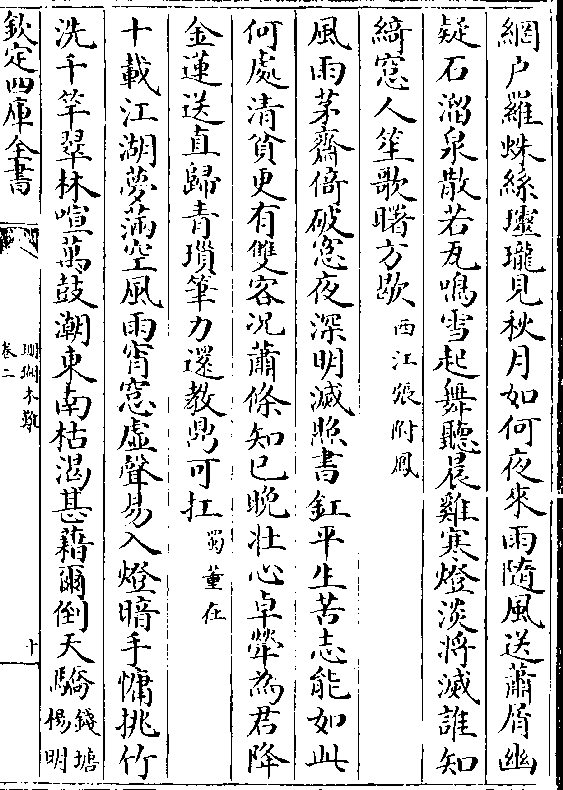 網户羅蛛絲壟瓏見秋月如何夜來雨隨風送蕭屑幽
疑石溜泉散若瓦鳴雪起舞聽晨雞寒燈淡將滅誰知
綺窓人笙歌曙方歇 西江張附鳳
風雨茅齋倚破窓夜深明滅照書釭平生苦志能如此
何處清貧更有雙客况蕭條知已晚壯心卓犖為君降
金蓮送直歸青瑣筆力還教鼎可扛 蜀董在
十載江湖夢滿空風雨宵窓虚聲易入燈暗手慵挑竹
洗千竿翠林喧萬鼓潮東南枯渴甚藉爾倒天驕 錢塘楊明
欽定四庫全書
珊瑚木難
卷二
十